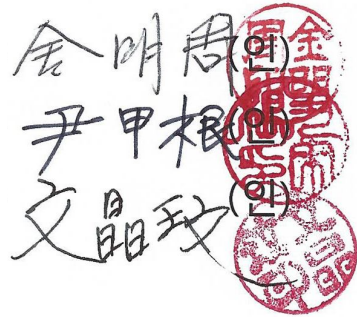 金明周(인)
尹甲根(인)
文晶玟(인)